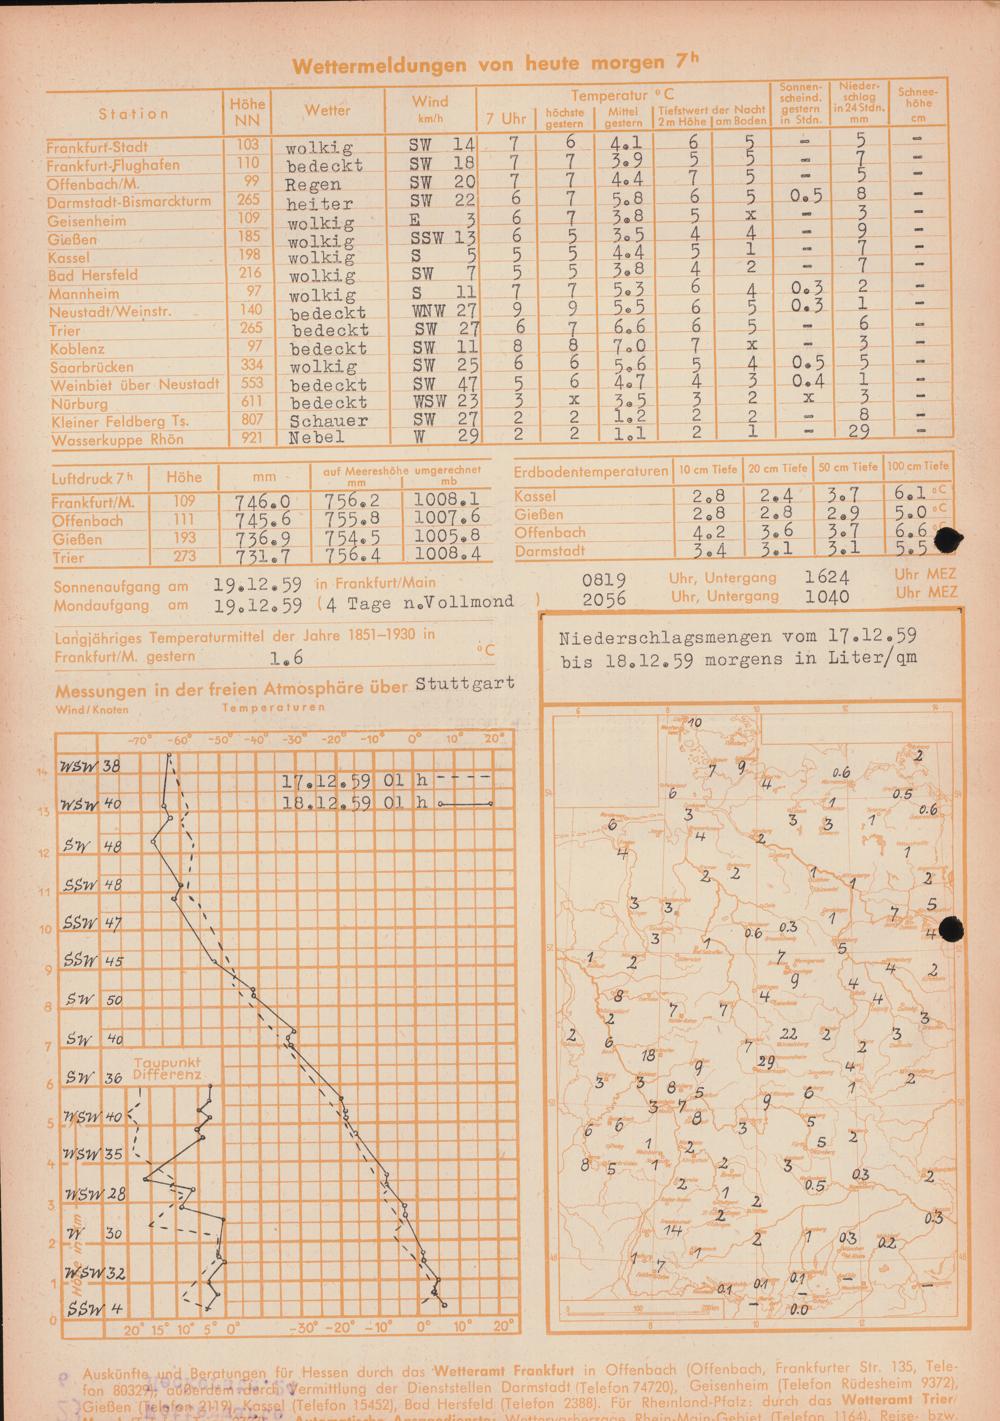 Wettermeldungen von heute morgen 7h
Station Höhe NN Wetter Wind km/h Temperatur °C Sonnenscheind. gestern in Stdn. Niederschlag in 24 Stdn. mm Schneehöhe cm
7 Uhr höchste gestern Mittel gestern Tiefstwert der Nacht 2m Höhe am Boden
Frankfurt-Stadt 103 wolkig SW 14 7 6 4.1 6 5 - 5 -
Frankfurt-Flughafen 110 bedeckt SW 18 7 7 3.9 5 5 - 7 -
Offenbach/M. 99 Regen SW 20 7 7 4.4 7 5 - 5 -
Darmstadt-Bismarckturm 265 heiter SW 22 6 7 5.8 6 5 0.5 8 -
Geisenheim 109 wolkig E 3 6 7 3.8 5 x - 3 -
Gießen 185 wolkig SSW 13 6 5 3.5 4 4 - 9 -
Kassel 198 wolkig S 5 5 5 4.4 5 1 - 7 -
Bad Hersfeld 216 wolkig SW 7 5 5 3.8 4 2 - 7 -
Mannheim 97 wolkig S 11 7 7 5.3 6 4 0.3 2 -
Neustadt/Weinstr. 140 bedeckt WNW 27 9 9 5.5 6 5 0.3 1 -
Trier 265 bedeckt SW 27 6 7 6.6 6 5 - 6 -
Koblenz 97 bedeckt SW 11 8 8 7.0 7 x - 3 -
Saarbrücken 334 wolkig SW 25 6 6 5.6 5 4 0.5 5 -
Weinbiet über Neustadt 553 bedeckt SW 47 5 6 4.7 4 3 0.4 1 -
Nürburg 611 bedeckt WSW 23 3 x 3.5 3 2 x 3 -
Kleiner Feldberg Ts. 807 Schauer SW 27 2 2 1.2 2 2 - 8 -
Wasserkuppe Rhön 921 Nebel W 29 2 2 1.1 2 1 - 29 -
Luftdruck 7h Höhe mm auf Meereshöhe umgerechnet mm mb
Frankfurt/M. 109 746.0 756.2 1008.1
Offenbach 111 745.6 755.8 1007.6
Gießen 193 736.9 754.5 1005.8
Trier 273 731.7 756.4 1008.4
Erdbodentemperaturen 10 cm Tiefe 20 cm Tiefe 50 cm Tiefe 100 cm Tiefe
Kassel 2.8 2.4 3.7 6.1 °C
Gießen 2.8 2.8 2.9 5.0 °C
Offenbach 4.2 3.6 3.7 6.6
Darmstadt 3.4 3.1 3.1 5.5
Sonnenaufgang am 19.12.59 in Frankfurt/Main 0819 Uhr, Untergang 1624 Uhr MEZ
Mondaufgang am 19.12.59 (4 Tage n.Vollmond ) 2056 Uhr, Untergang 1040 Uhr MEZ
Langjähriges Temperaturmittel der Jahre 1851–1930 in
Frankfurt/M. gestern 1.6 °C
Messungen in der freien Atmosphäre über Stuttgart
Wind/Knoten Temperaturen
-70° -60° -50° -40° -30° -20° -10° 0° 10° 20°
17.12.59 01 h
18.12.59 01 h
WSW 38
WSW 40
SW 48
SSW 48
SSW 47
SSW 45
SW 50
SW 40
SW 36
WSW 40
WSW 35
WSW 28
W 30
WSW 32
SSW 4
14
13
12
11
10
9
8
7
6
5
4
3
2
1
0
Taupunkt
Differenz
Höhe in km
20° 15° 10° 5° 0° -30° -20° -10° 0° 10° 20°
Niederschlagsmengen vom 17.12.59
bis 18.12.59 morgens in Liter/qm
10
7 9 4 0.6 2
6 3 1 0.5 0.6
6 4 4 3 3 1 2 1
2 2 1 1 2
3 3 1 7 5
3 1 0.6 0.3 5 4
1 2 7 9 4 2
8 2 7 7 4 4 4 3
2 6 22 2 3
18 9 7 29 2 4
3 3 8 5 6 1 2
3 7 8 9 5
6 6 3 5 2
1 2
8 5 1 2 3 0.3 2
2 1 2 0.5
2 0.3
14 2 1 0.3 0.2
1 7 1
0.1 0.1 0.1 - -
- - 0.0
Auskünfte und Beratungen für Hessen durch das Wetteramt Frankfurt in Offenbach (Offenbach, Frankfurter Str. 135, Tele-
fon 80329), außerdem durch Vermittlung der Dienststellen Darmstadt (Telefon 74720), Geisenheim (Telefon Rüdesheim 9372),
Gießen (Telefon 2119), Kassel (Telefon 15452), Bad Hersfeld (Telefon 2388). Für Rheinland-Pfalz: durch das Wetteramt Trier/
Automatische Ansagedienste: Wettervorhersage Rhein-Main-Gebiet (Telefon 1164), Reise- bzw.